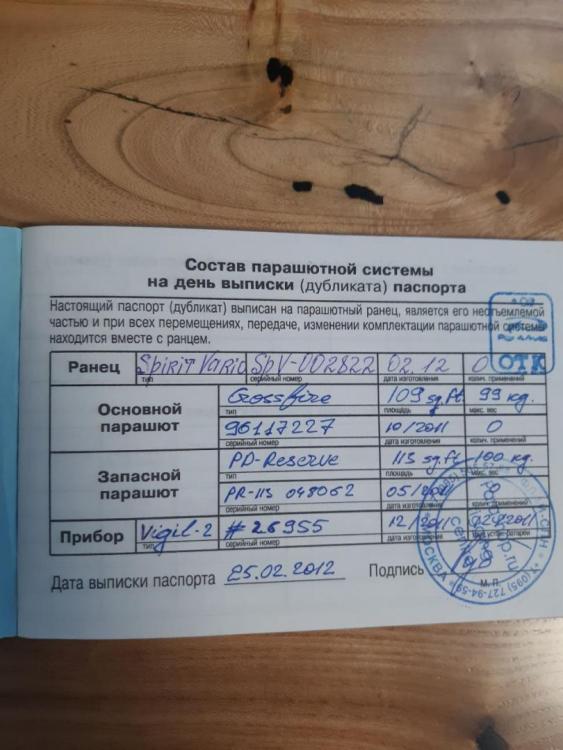 Состав парашютной системы
на день выписки (дубликата) паспорта
Настоящий паспорт (дубликат) выписан на парашютный ранец, является его неотъемлемой
частью и при всех перемещениях, передаче, изменении комплектации парашютной системы
находится вместе с ранцем.
ОТК
Ранец Spirit Vario SpV-002822 02.12 0
тип серийный номер дата изготовления колич. применений
Основной парашют
Crossfire 109 sq.ft. 99 kg.
тип площадь макс. вес
96117227 10/2011 0
серийный номер дата изготовления колич. применений
Запасной парашют
PD-Reserve 113 sq.ft. 100 kg.
тип площадь макс. вес
PR-113 048062 05/2011
серийный номер дата изготовления колич. применений
Прибор Vigil-2 #26955 12/2011
тип серийный номер дата изготовления
Дата выписки паспорта 25.02.2012 Подпись
М. П.
МОСКВА
(095) 727-94-59